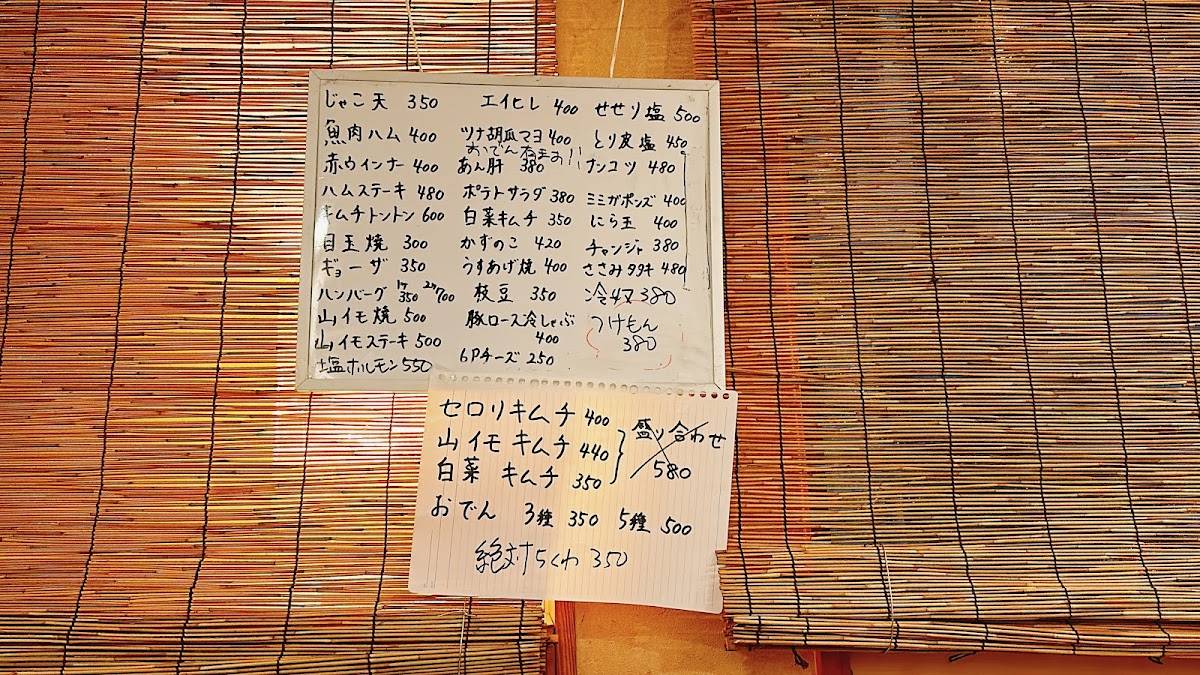 じゃこ天 350
魚肉ハム 400
赤ウインナー 400
ハムステーキ 480
キムチトントン 600
目玉焼 300
ギョーザ 350
ハンバーグ 1ケ350 2ケ700
山イモ焼 500
山イモステーキ 500
塩ホルモン 550
エイヒレ 400
ツナ胡瓜マヨ 400
おでん
あん肝 380
ポテトサラダ 380
白菜キムチ 350
かずのこ 420
うすあげ焼 400
枝豆 350
豚ロース冷しゃぶ
400
6Pチーズ 250
せせり塩 500
とり皮塩 450
ナンコツ 480
ミミガポンズ 400
にら玉 400
チャンジャ 380
ささみタタキ 480
冷奴 380
つけもん
380
セロリキムチ 400
山イモキムチ 440
白菜キムチ 350
盛り合わせ
580
おでん 3種 350 5種 500
絶対ちくわ 350